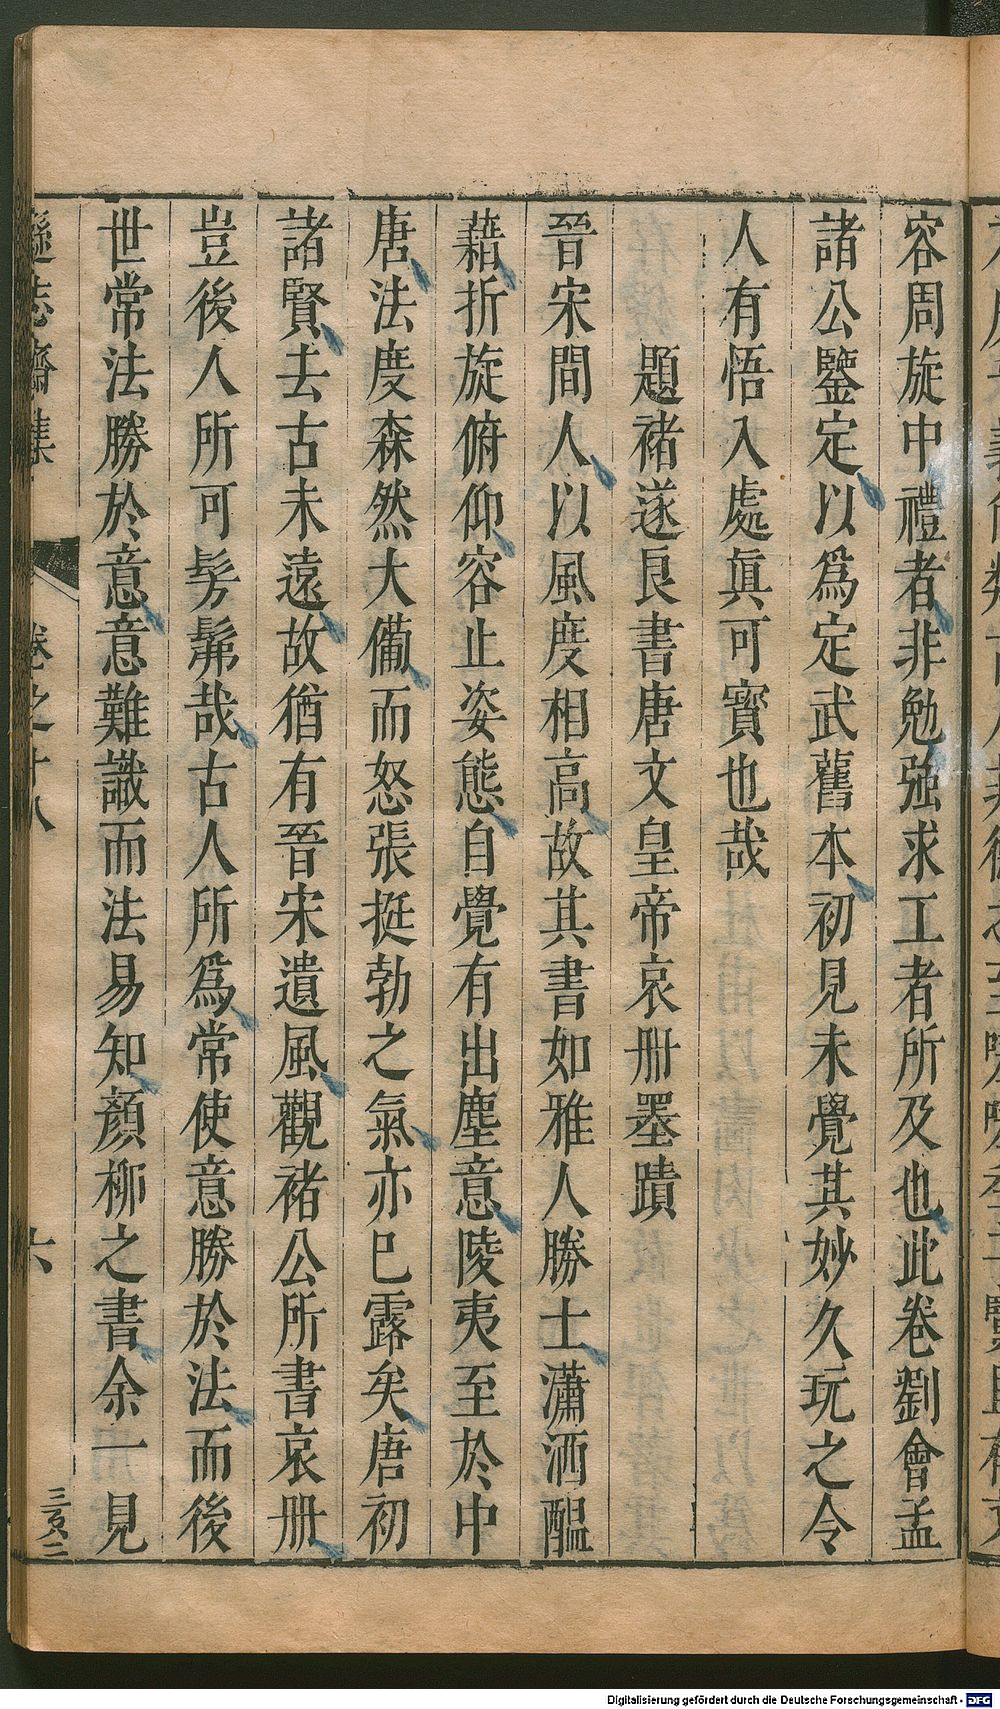 容周旋中禮者非勉強求工者所及也此卷劉會孟
諸公鑒定以爲定武舊本初見未覺其妙久玩之令
人有悟入處眞可寳也哉
題褚遂良書唐文皇帝哀冊墨蹟
晉宋間人以風度相高故其書如雅人勝士瀟洒醞
藉折旋俯仰容止姿態自覺有出塵意陵夷至於中
唐法度森然大備而怒張挺勃之氣亦已露矣唐初
諸賢去古未遠故猶有晉宋遺風觀褚公所書哀冊
豈後人所可髣髴哉古人所爲常使意勝於法而後
世常法勝於意意難識而法易知顏柳之書余一見
遜志齋集
卷之十八
六
Digitalisierung gefördert durch die Deutsche Forschungsgemeinschaft - DFG